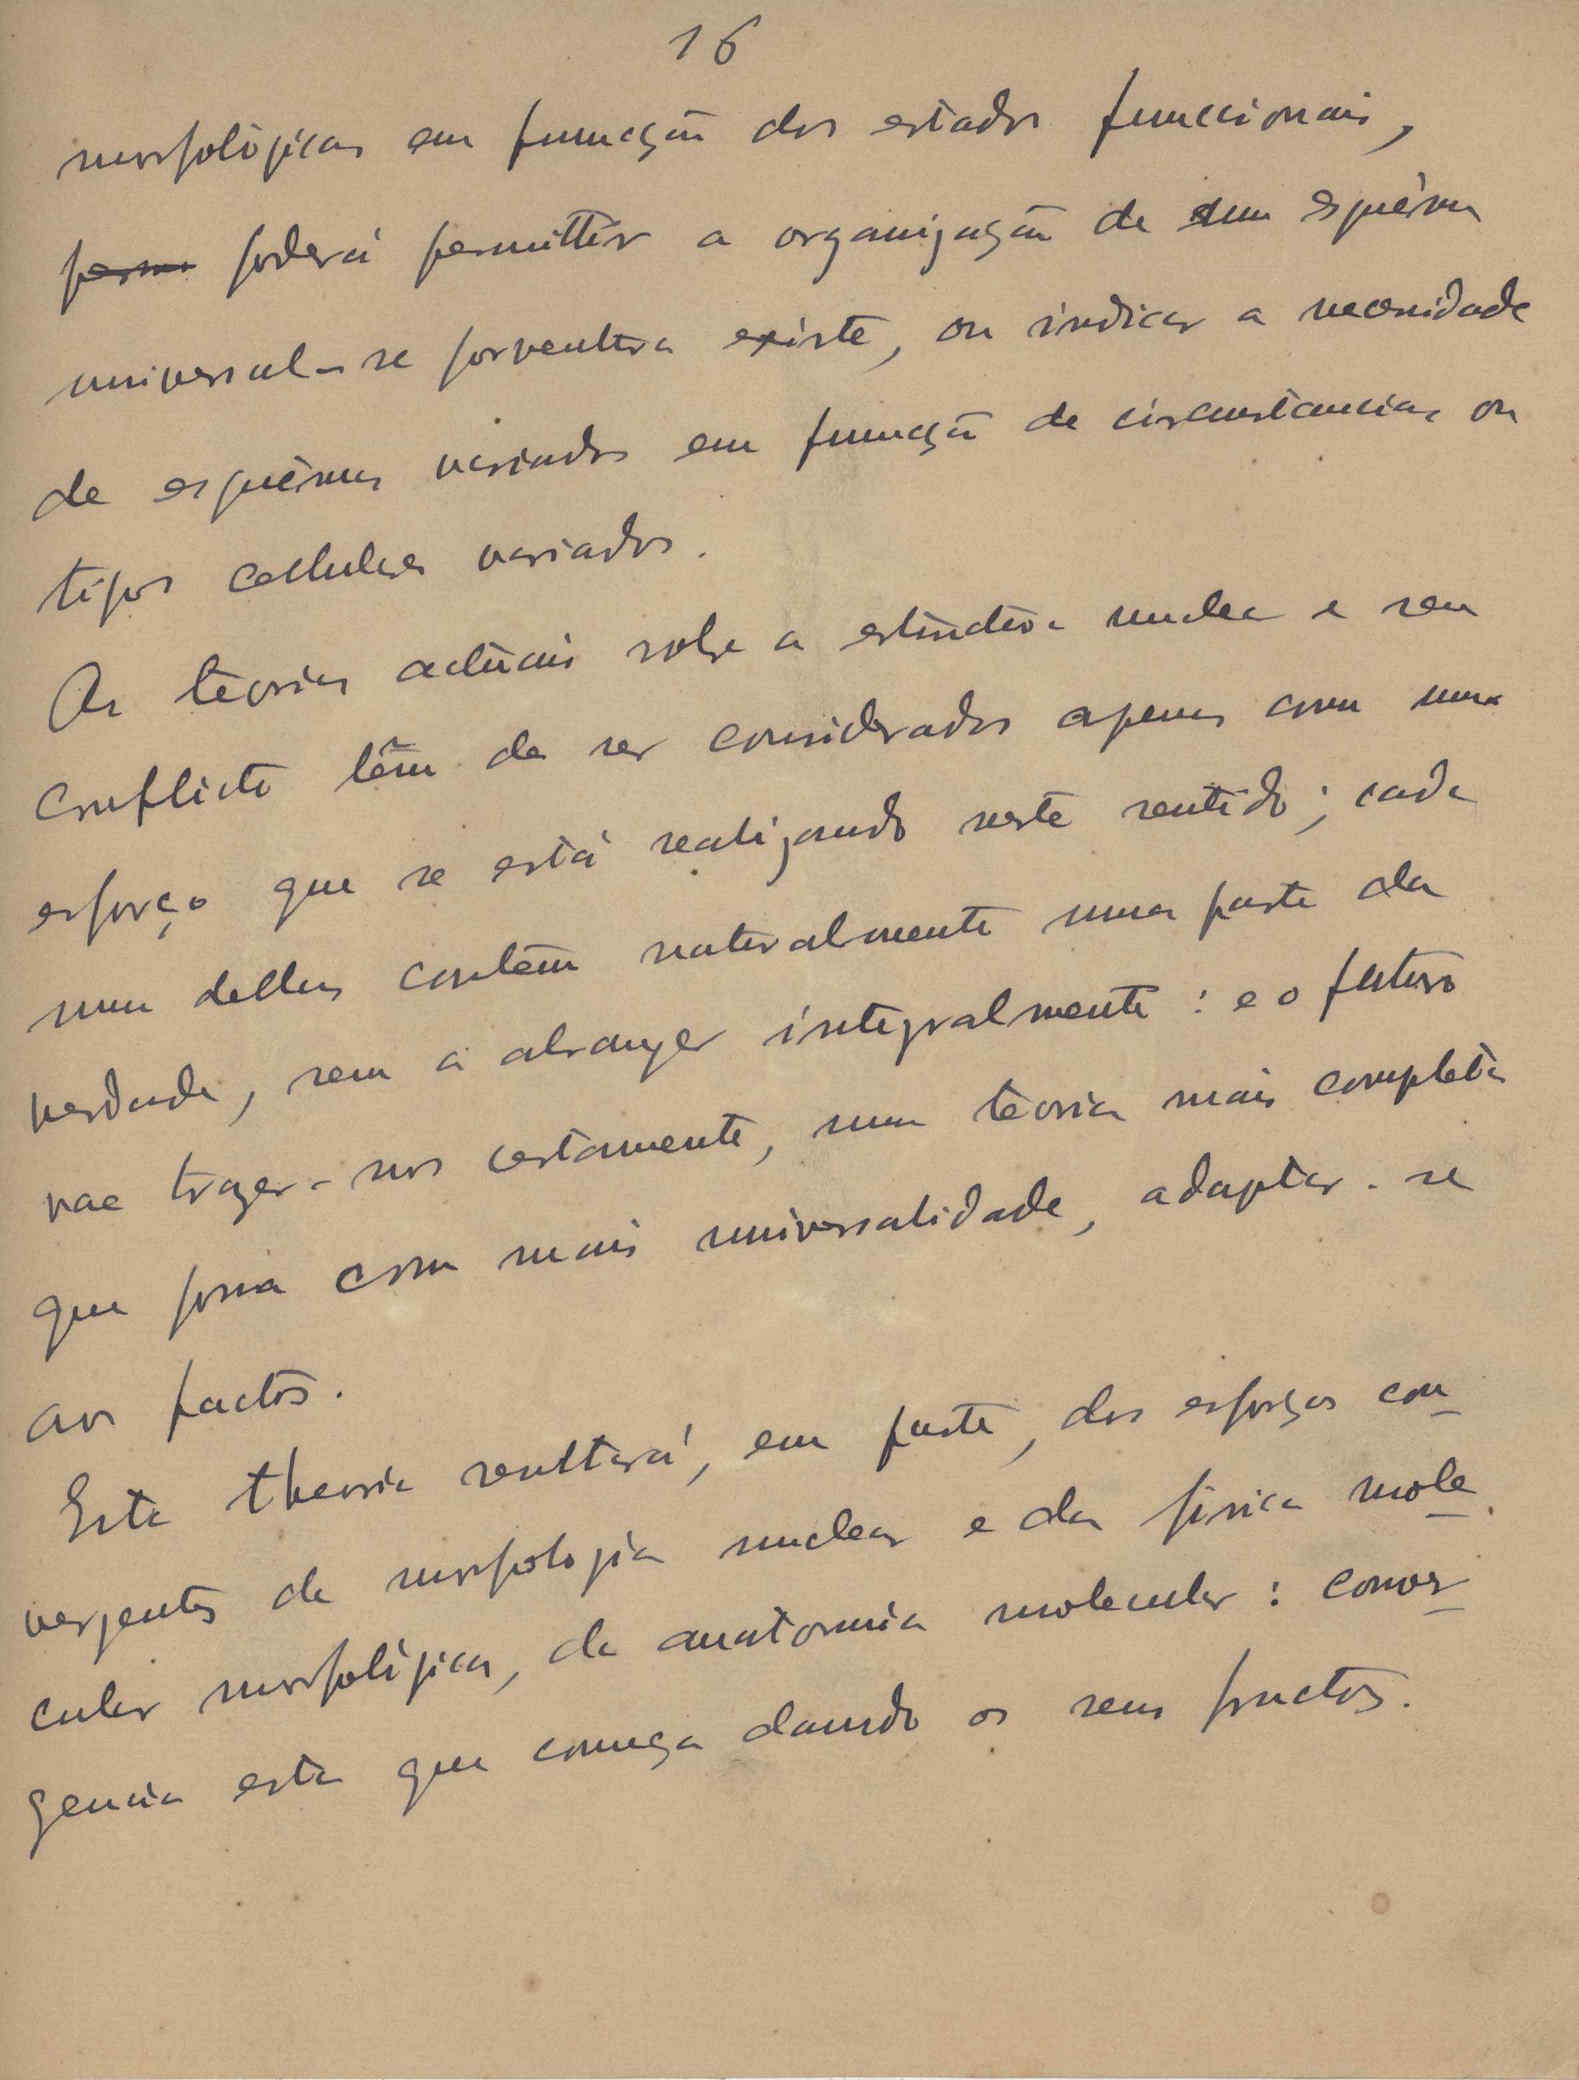 16
morfológicas em funcção dos estados funccionais,
permi poderá permittir a organização de um esquéma
universal - se porventura existe, ou indicar a necessidade
de esquémas variados em funcção de circunstancias ou
tipos cellulares variados.
As teorias actuais sobre a estructura nuclear e seu
conflicto têm de ser considerados apenas como um
esforço que se está realizando neste sentido; cada
uma dellas contêm naturalmente uma parte da
verdade, sem a abranger integralmente: e o futuro
vae trazer-nos certamente, uma teoria mais completa
que possa com mais universalidade, adaptar-se
aos factos.
Esta theoria resultará, em parte, dos esforços con-
vergentes da morfologia nuclear e da fisica mole-
cular morfológica, da anatomia molecular: conver-
gencia esta que começa dando os seus fructos.